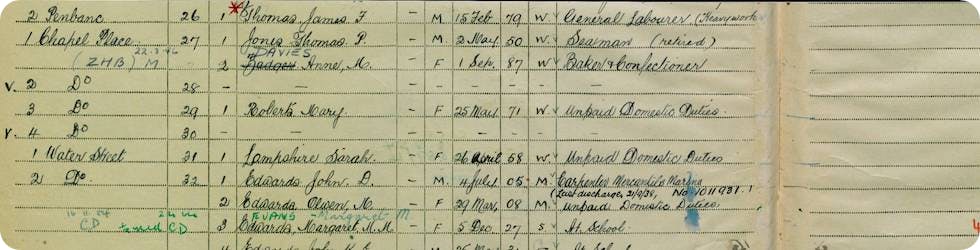 2 Penbanc 26 1 Thomas, James F. – M. 15 Feb 79 W. General Labourer (Heavy worker
1 Chapel Place 27 1 Jones Thomas P. – M. 2 May 50 W. Seaman (retired)
22.3.46 DAVIES
(ZHB) M 2 Badger Anne, M. – F 1 Sep. 87 W. Baker & Confectioner
V. 2 Do 28 – – – – – –
3 Do 29 1 Roberts Mary. – F 25 May 71 W. Unpaid Domestic Duties
V. 4 Do 30 – – – – – –
1 Water Street 31 1 Lampshire Sarah. – F 26 April 58 W. Unpaid Domestic Duties
2 Do. 32 1 Edwards John, D. – M. 4 July 05 M. Carpenter Mercantile Marine
(Last discharge, 21/9/38, No 1011931.)
2 Edwards, Olwen, M. – F 29 Mar. 08 M. Unpaid Domestic Duties.
EVANS – Margaret M
CD CD 3 Edwards, Margaret, M. M. – F 5 Dec. 27 S. At School.